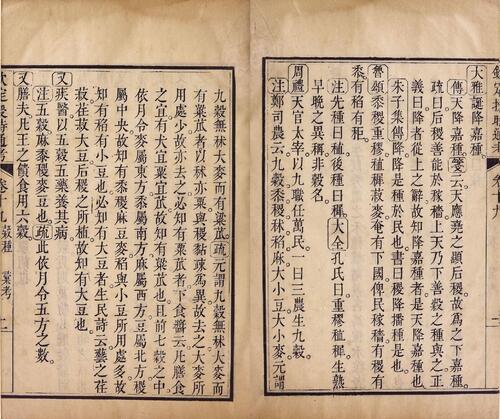 大雅誕降嘉種
傳天降嘉種箋云天應堯之顯后稷故為之下嘉種
疏曰后稷善能於稼穡上天乃下善穀之種與之正
義曰降者從上之辭故知降嘉種者是天降嘉種也
朱子集傳降降是種於民也書曰稷降播種是也
魯頌黍稷重穋稙穉菽麥奄有下國俾民稼穡有稷有
黍有稻有秬
注先種曰稙後種曰穉大全孔氏曰重穋稙穉生熟
早晚之異稱非穀名
周禮天官太宰以九職任萬民一曰三農生九穀
注鄭司農云九穀黍稷秫稻麻大小豆大小麥元謂
九穀無秫大麥而有粱苽疏元謂九穀無秫大麥而
有粱苽者以秫亦粱與稷黏疎為異故去之大麥所
用處少故亦去之必知有粱苽者下食醫云凡膳食
之宜有犬宜粱宜苽故知有粱苽也且前七穀之中
依月令麥屬東方黍屬南方麻屬西方豆屬北方稷
屬中央故知有黍稷麻豆麥稻與小豆所用處多故
知有稻有小豆也必知有大豆者生民詩云蓺之荏
菽荏菽大豆后稷之所植故知有大豆也
又疾醫以五穀五藥養其病
注五穀麻黍稷麥豆也疏此依月令五方之數
又膳夫凡王之饋食用六穀
欽定授時通考 卷十九 穀種 彙考 二